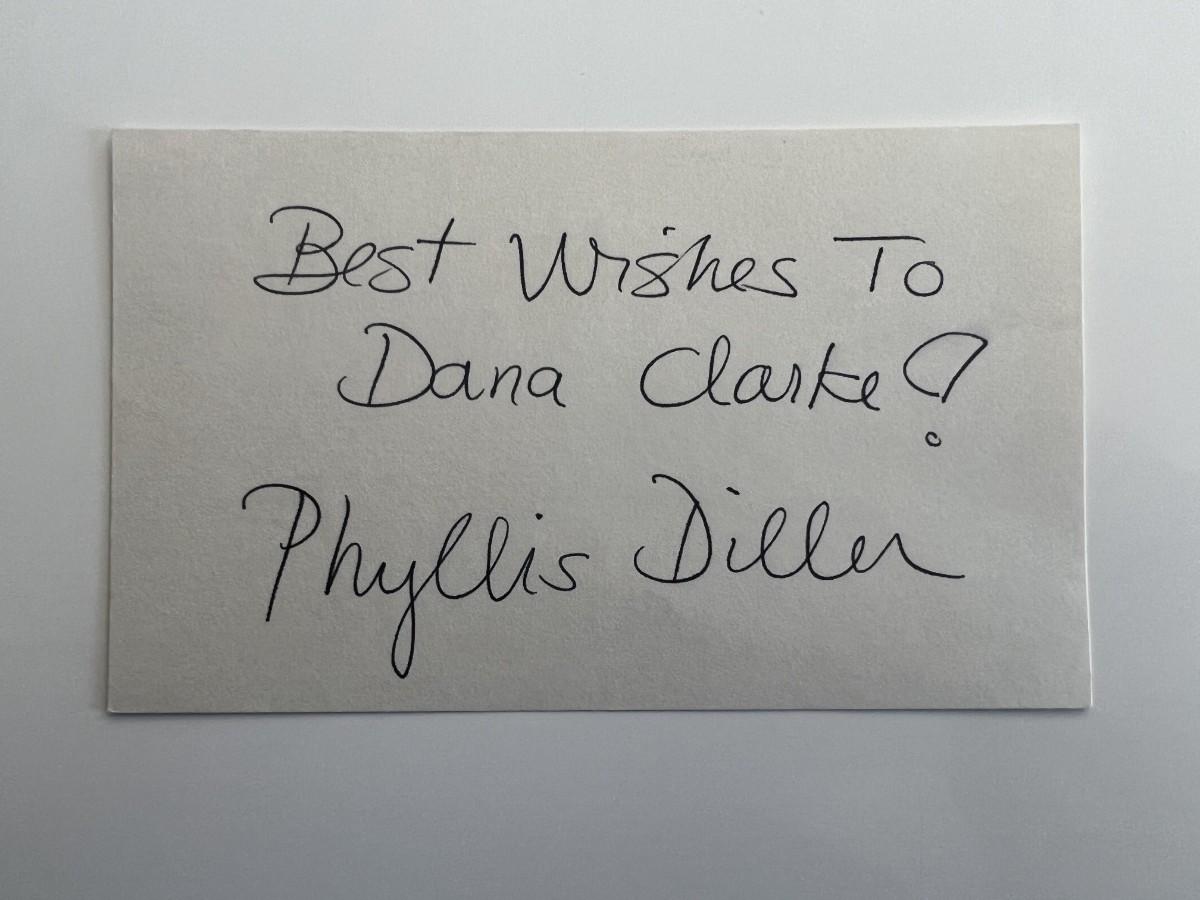 Best Wishes To
Dana Clarke?
Phyllis Diller